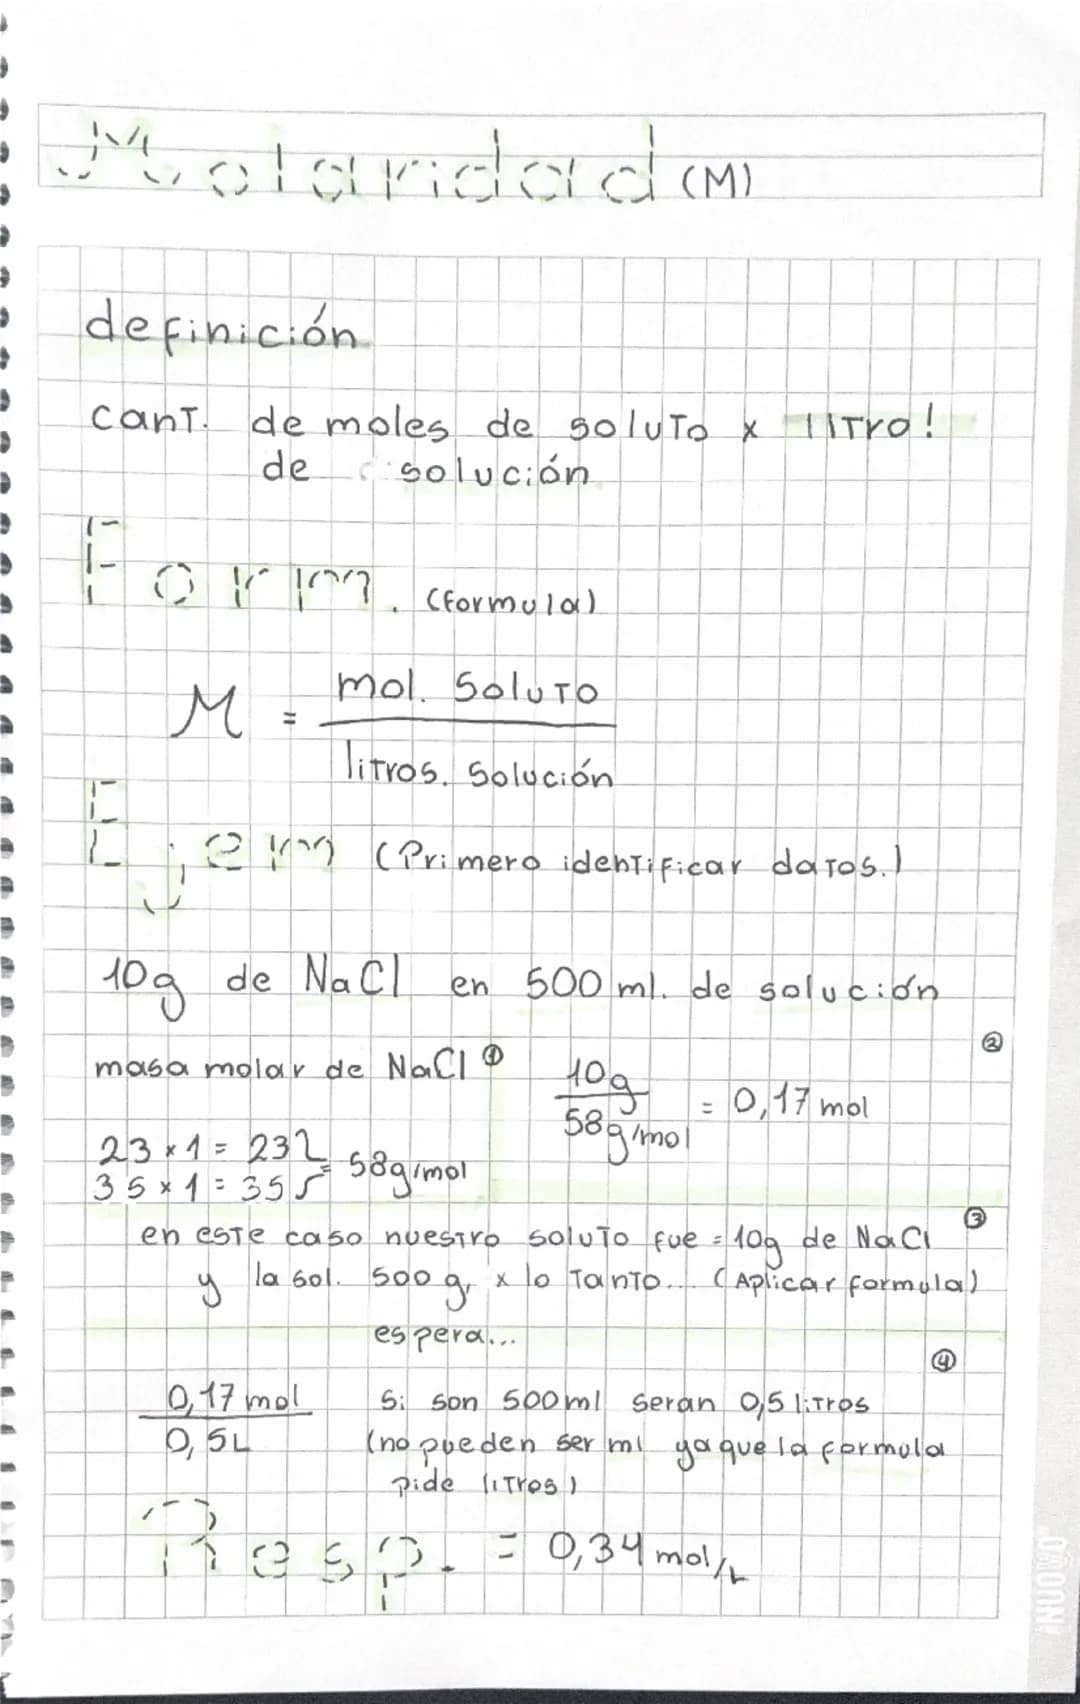 Molaridad (M)
definición
cant. de moles de soluto x litro!
de solución
Form. (formula)
M = mol. soluto
litros. solución
Ejem (Primero identificar datos.)
10g de NaCl en 500 ml. de solución
masa molar de NaCl ①
10g
58g/mol = 0,17 mol ②
23 x 1 = 23
35 x 1 = 35 = 58g/mol
en este caso nuestro soluto fue = 10g de NaCl ③
y la sol. 500 g, x lo tanto... (Aplicar formula)
espera...
④
0,17 mol
0,5L
Si son 500ml seran 0,5 litros
(no pueden ser ml ya que la formula
pide litros)
Resp. = 0,34 mol/L
NUOVO